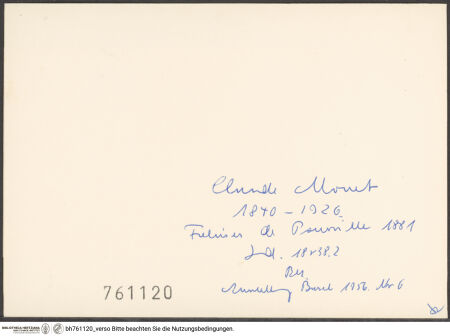 Claude Monet
1840 - 1926
Falaises de Pourville 1881
18 x 38.2
Bes.
Ausstellung Basel 1956. Nr 6
761120
BIBLIOTHECA HERTZIANA bh761120_verso Bitte beachten Sie die Nutzungsbedingungen.